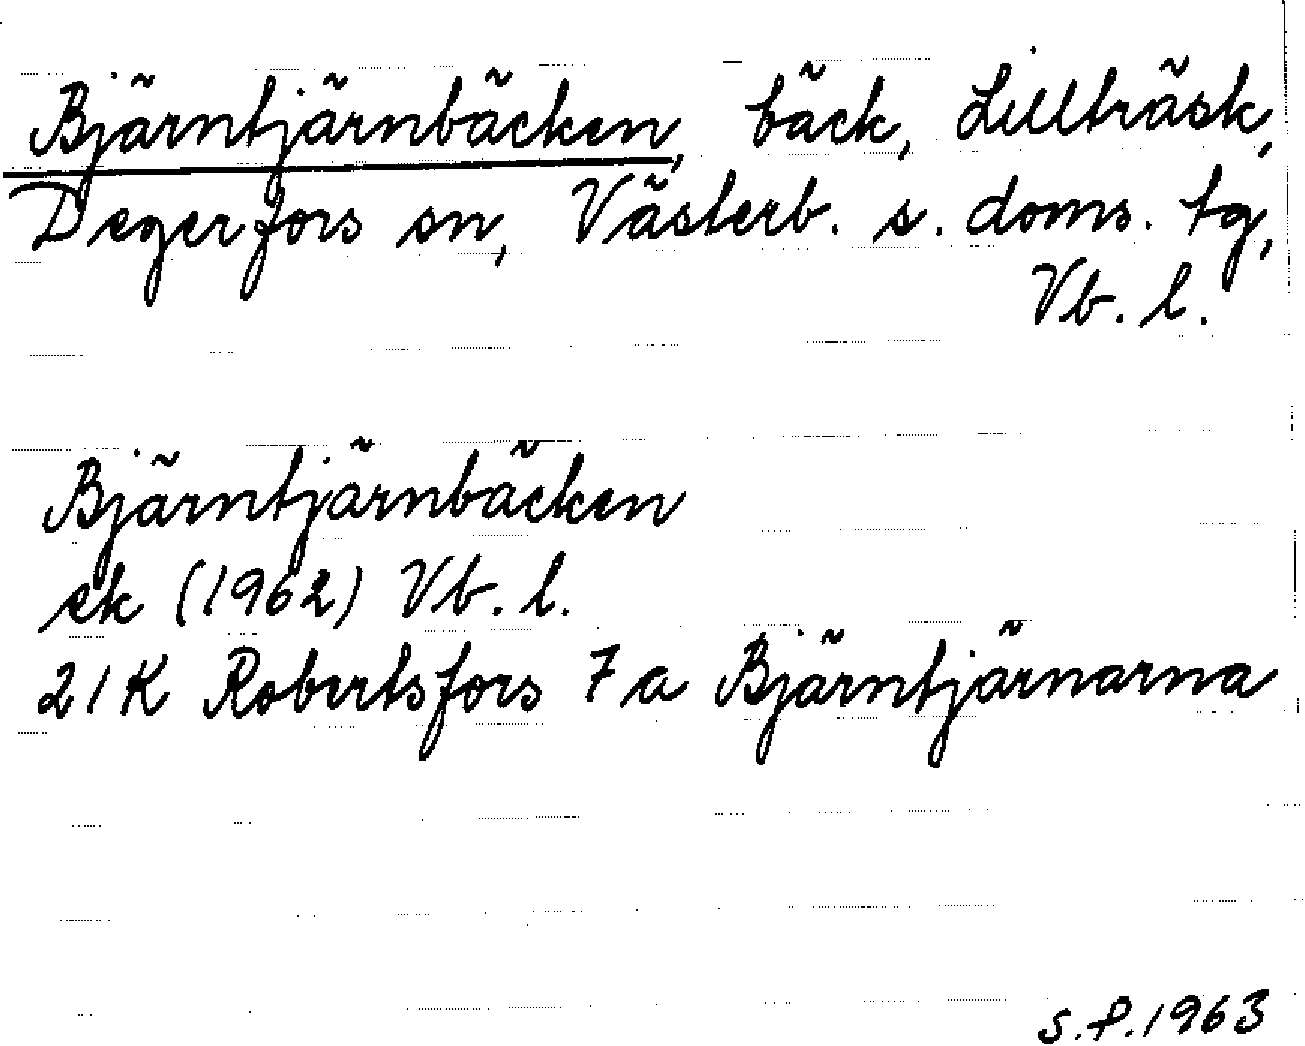 Bjärntjärnbäcken, bäck, Lillträsk,
Degerfors sn, Västerb. s. doms. tg,
Vb. l.
Bjärntjärnbäcken
ek (1962) Vb. l.
21K Robertsfors 7a Bjärntjärnarna
S.P. 1963